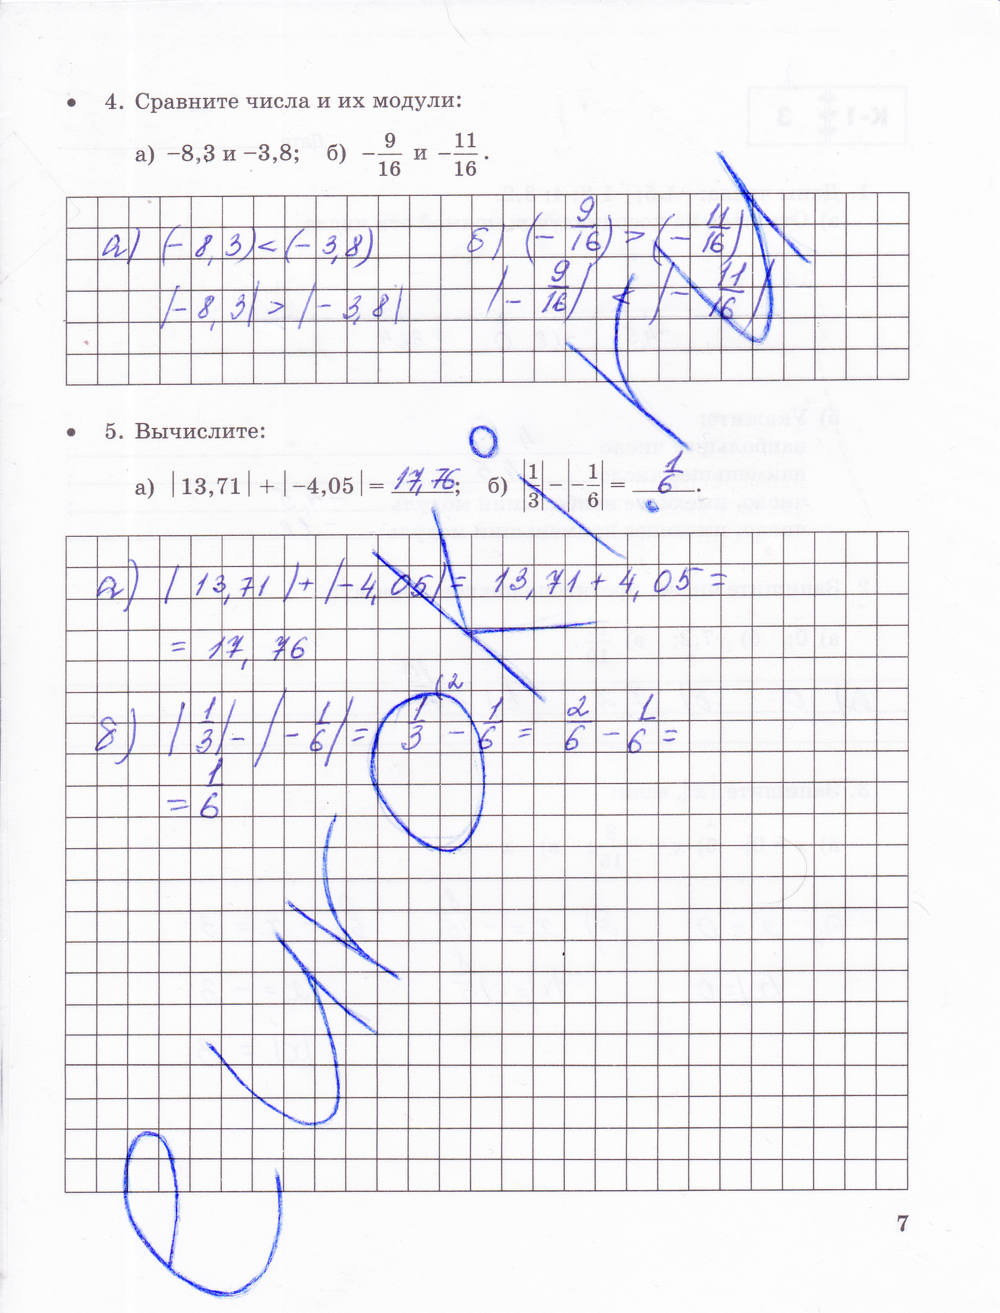 • 4. Сравните числа и их модули:
а) −8,3 и −3,8; б) −9/16 и −11/16.
а) (−8,3) < (−3,8) б) (−9/16) > (−11/16)
|−8,3| > |−3,8| |−9/16| < |−11/16|
• 5. Вычислите:
а) |13,71| + |−4,05| = 17,76; б) |1/3| − |−1/6| = 1/6.
а) |13,71| + |−4,05| = 13,71 + 4,05 =
= 17,76
б) |1/3| − |−1/6| = 1/3 − 1/6 = 2/6 − 1/6 =
= 1/6
7